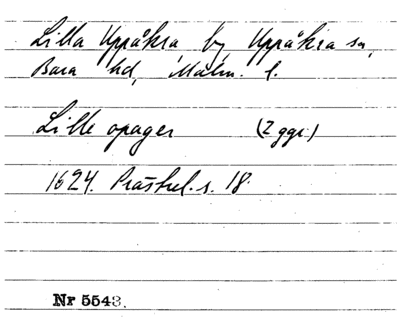 Lilla Uppåkra by Uppåkra sn,
Bara hd, Malm. l.
Lille opager (2 ggr.)
1624. Prästrel. s. 18.
Nr 5543.